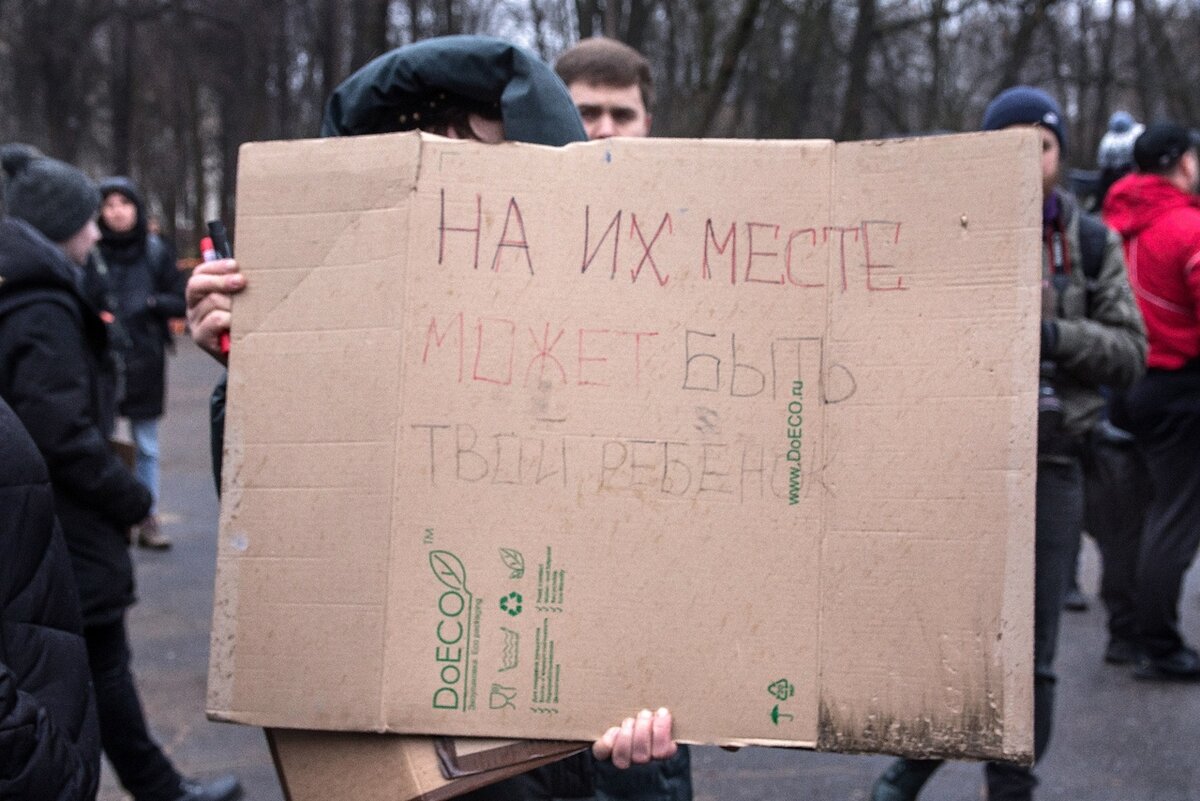 НА ИХ МЕСТЕ
МОЖЕТ БЫТЬ
ТВОЙ РЕБЕНОК
www.DoECO.ru
DoECO™